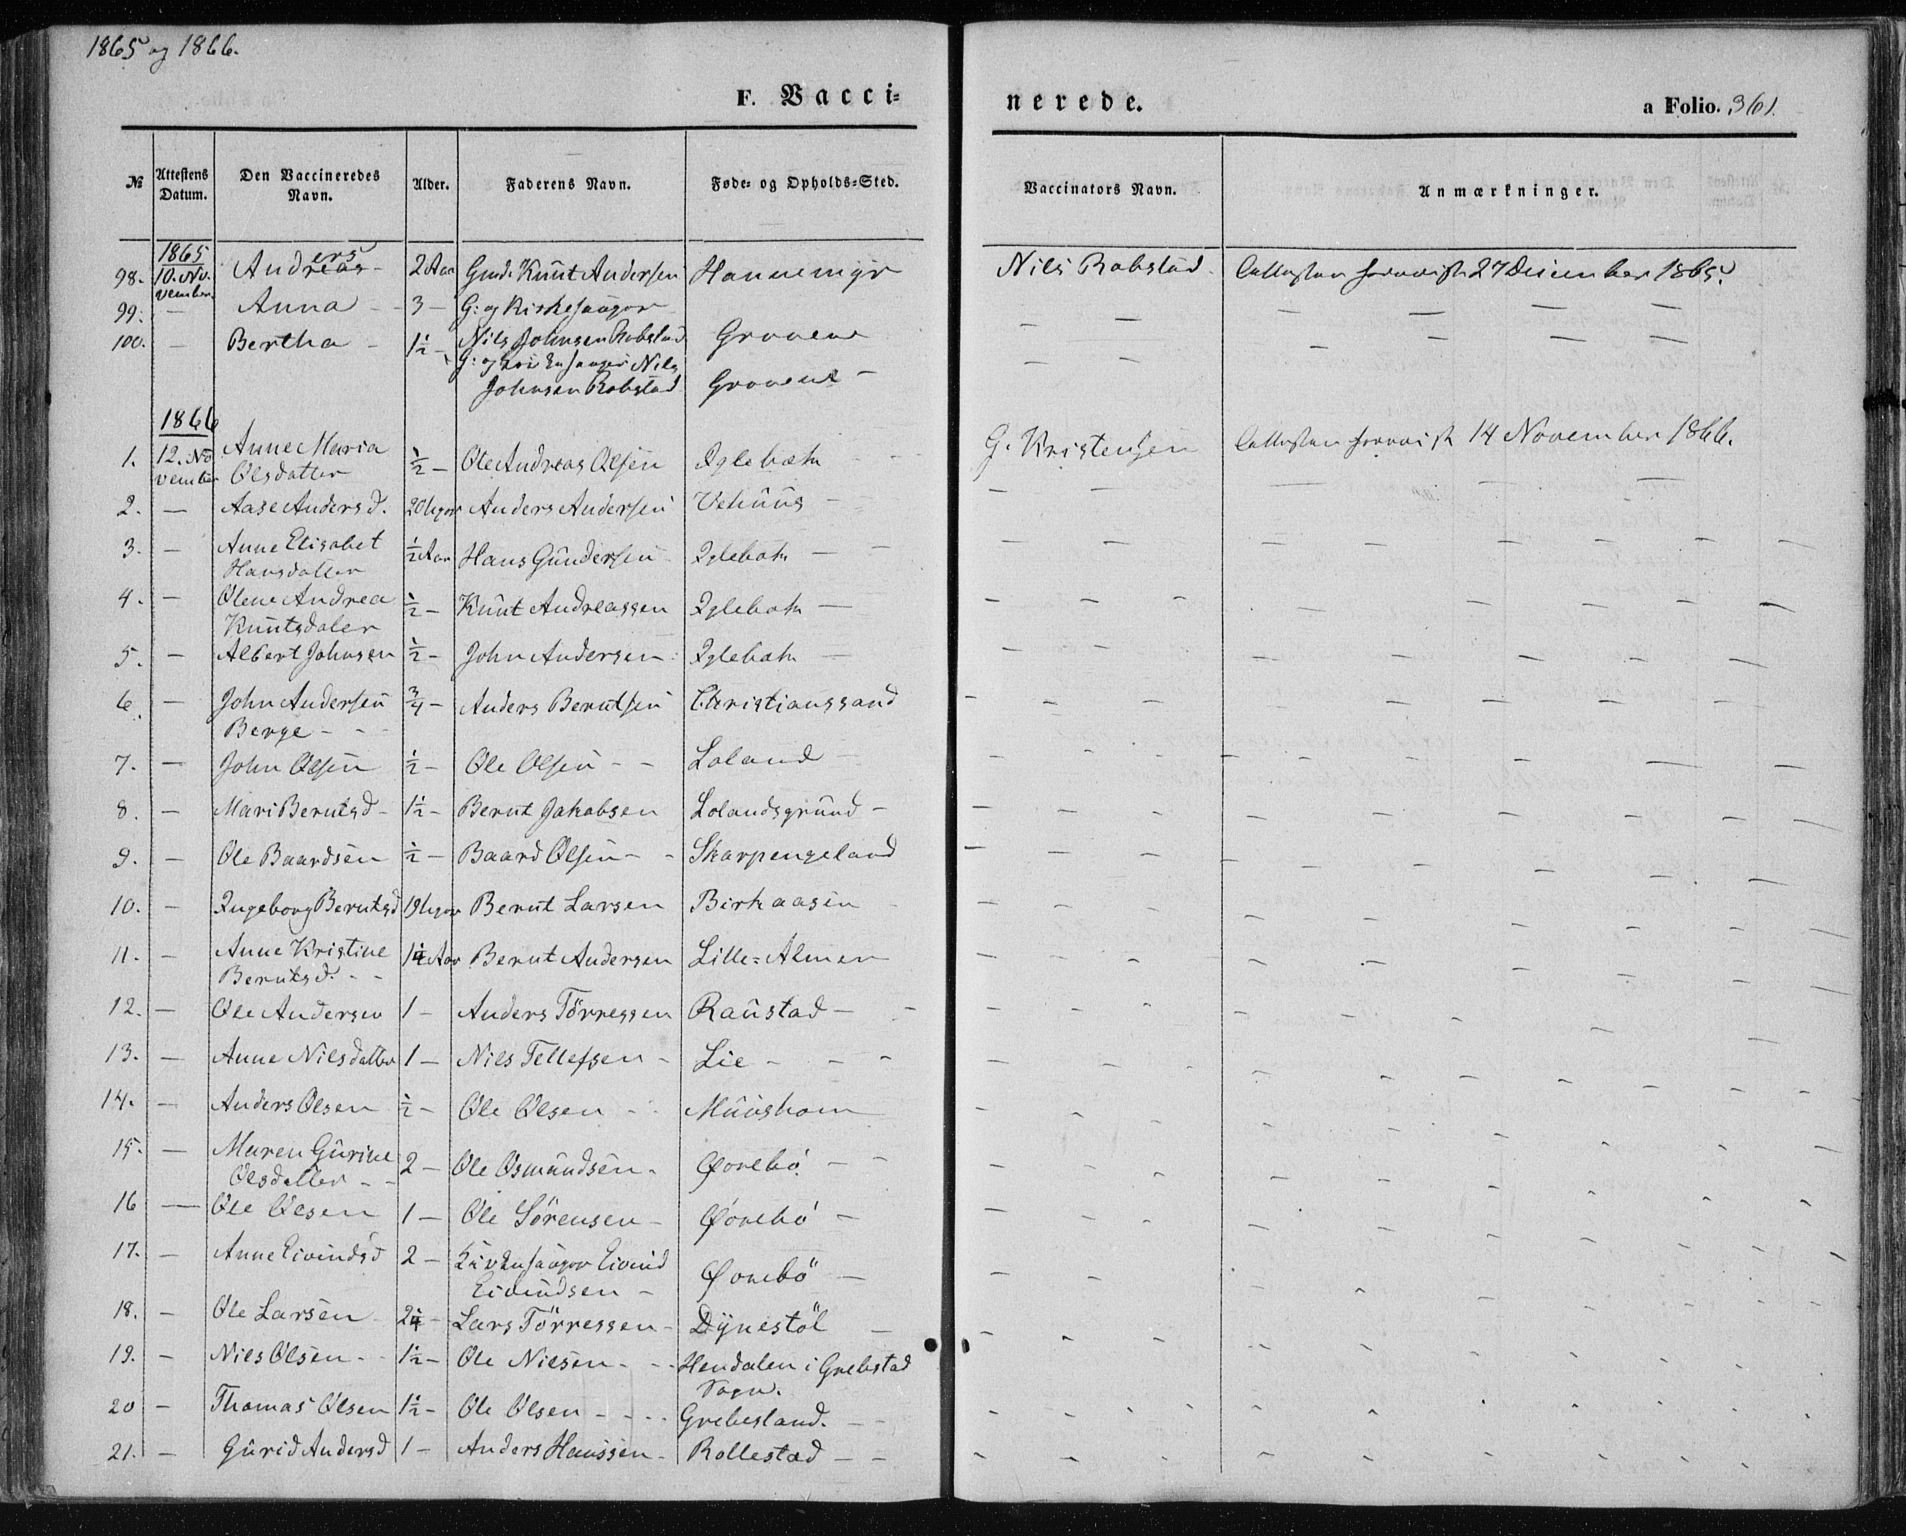 1865 og 1866.
F. Vacci=
nerede.
a Folio. 361.
№ Attestens Datum. Den Vaccineredes Navn. Alder. Faderens Navn. Føde- og Opholds-Sted. Vaccinators Navn. Anmærkninger.
1865
98. 10. No- Anders 2 Aar Gmd. Knut Andersen Hannemyr Nils Robstad Attesten forevist 27 December 1865.
vember
99. — Anna - 3 - G: og Kirkesanger — — — — — —
Nils Johnsen Robstad Groven
100. — Bertha - 1½ - G: og Kirkesanger Nils — — — — — —
Johnsen Robstad Groven -
1866
1. 12. No- Anne Maria ½ - Ole Andreas Olsen Iglebæk - - G. Kristensen Attesten forevist 14 November 1866.
vember Olsdatter
2. — Aase Andersd. 20 Uger Anders Andersen Vehuus - — — — — — —
3. - Anne Elisabet ½ Aar Hans Gundersen Iglebæk - - — — — — — —
Hansdatter
4. - Olene Andrea ½ - Knut Andreassen Iglebæk — — — — — — —
Knutsdater
5. - Albert Johnsen ½ - John Andersen Iglebæk - — — — — — —
6. - John Andersen ¾ - Anders Berntsen Christianssand — — — — — —
Berge - - -
7. — John Olsen ½ - Ole Olsen - - Loland - — — — — — —
8. - Mari Berntsd - 1½ - Bernt Jakobsen Lolandsgrund - — — — — — —
9. - Ole Baardsen ½ - Baard Olsen - - Skarpengeland — — — — — —
10. - Ingeborg Berntsd 19 Uger Bernt Larsen Birkaasen - — — — — — —
11. - Anne Kristine 1¼ Aar Bernt Andersen Lille-Almen — — — — — —
Berntsd. - -
12. — Ole Andersen 1 - Anders Törressen Raustad - - — — — — — —
13. - Anne Nilsdatter 1 - Nils Tellefsen - Lie - - - — — — — — —
14. — Anders Olsen ½ - Ole Olsen - - Muusham — — — — — —
15. — Maren Gurine 2 - Ole Osmundsen - Øvrebö - - — — — — — —
Olsdatter - -
16 — Ole Olsen 1 - Ole Sörensen - Øvrebö - — — — — — —
17. - Anne Eivindsd 2 - Kirkesanger Eivind Øvrebö - — — — — — —
Eivindsen -
18. - Ole Larsen 2¼ - Lars Törressen - Dynestöl - — — — — — —
19. - Nils Olsen - - 1½ - Ole Nilsen - - - Hendalen i Grebstad — — — — — —
Sogn.
20 - Thomas Olsen 1½ - Ole Olsen - - - - Grebesland. - - — — — — — —
21. - Gurid Andersd 1 - Anders Hanssen - Rollestad - - — — — — — —